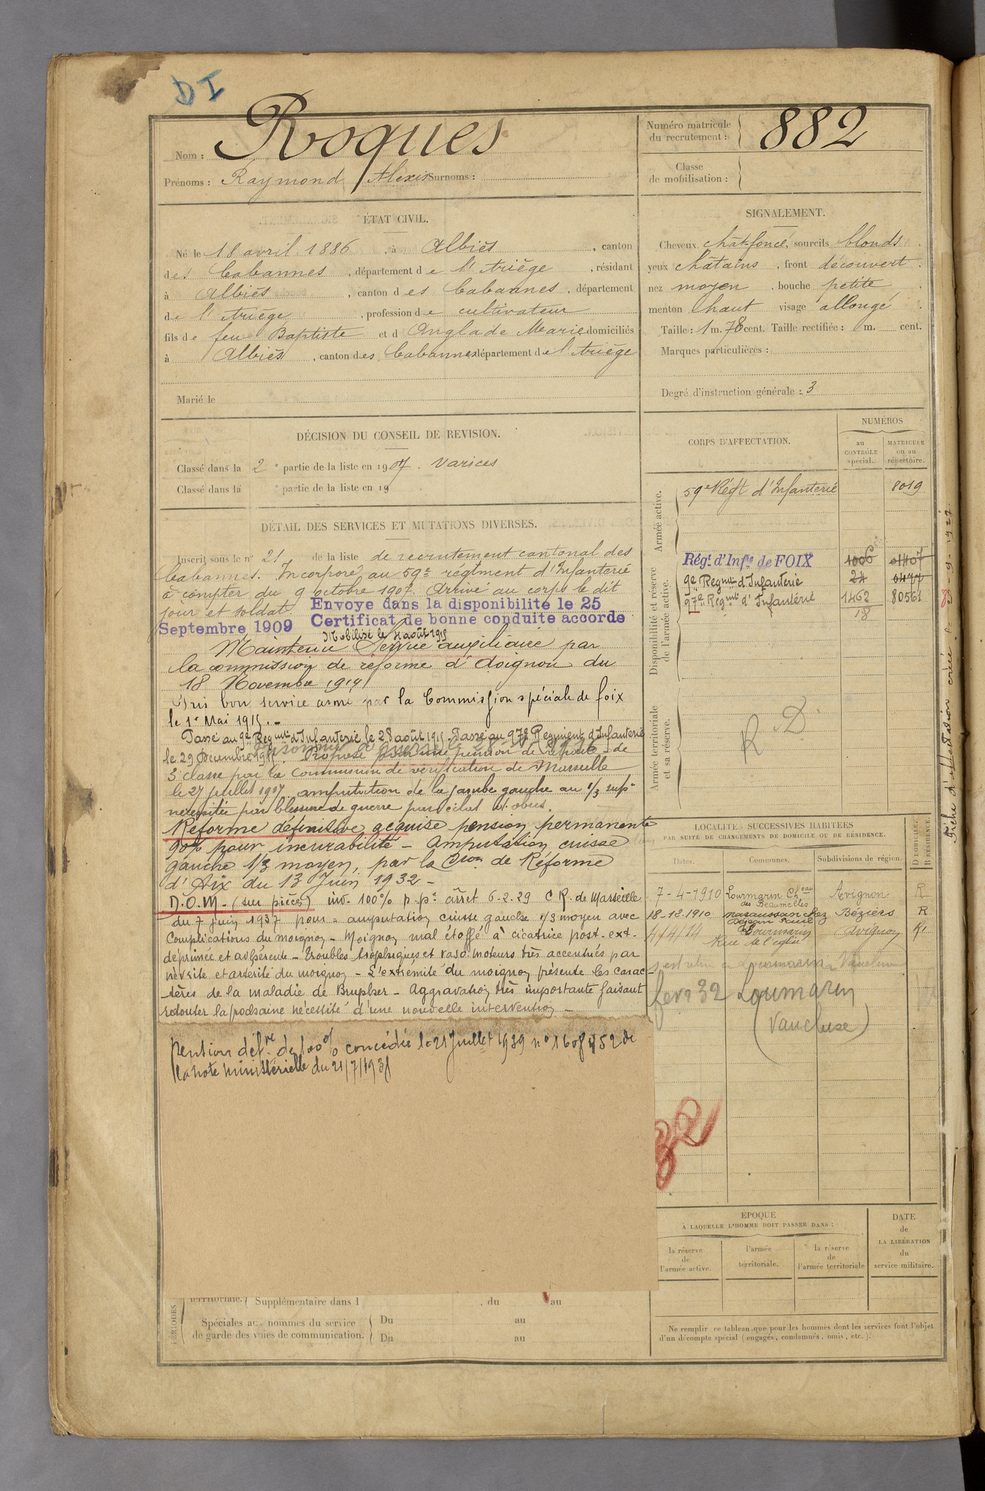 DI
Nom : Roques
Prénoms : Raymond Alexis Surnoms :
Numéro matricule du recrutement : 882
Classe de mobilisation :
ÉTAT CIVIL.
Né le 18 avril 1886, à Albiès, canton
des Cabannes, département de l'Ariège, résidant
à Albiès, canton des Cabannes, département
de l'Ariège, profession de cultivateur
fils de feu Baptiste et d'Anglade Marie domiciliés
à Albiès, canton des Cabannes département de l'Ariège
Marié le
SIGNALEMENT.
Cheveux chât foncé, sourcils blonds
yeux chatains, front découvert
nez moyen, bouche petite
menton haut visage allongé
Taille : 1 m. 78 cent. Taille rectifiée : m. cent.
Marques particulières :
Degré d'instruction générale : 3
DÉCISION DU CONSEIL DE REVISION.
Classé dans la 2e partie de la liste en 1907. Varices
Classé dans la e partie de la liste en 19
DÉTAIL DES SERVICES ET MUTATIONS DIVERSES.
Inscrit sous le n° 21 de la liste de recrutement cantonal des
Cabannes. Incorporé au 59e régiment d'Infanterie
à compter du 9 octobre 1907. Arrivé au corps le dit
jour et soldat. Envoye dans la disponibilité le 25
Septembre 1909 Certificat de bonne conduite accorde
Mobilisé le 4 août 1915
Maintenu Service auxiliaire par
la commission de réforme d'Avignon du
18 Novembre 1914
Pris bon service armé par la Commission spéciale de foix
le 1er Mai 1915.-
Passé au 9e Regmt d'Infanterie le 28 août 1915. Passé au 97e Regiment d'Infanterie
le 29 Decembre 1915. Proposé pour une pension de retraite de
5e classe par la commission de vérification de Marseille
le 27 juillet 1917 amputation de la jambe gauche au 1/3 supr
nécessitée par blessure de guerre par éclat d'obus.
Réforme définitive acquise pension permanente
90% pour incurabilité - amputation cuisse
gauche 1/3 moyen, par la Con de Réforme
d'Aix du 13 Juin 1932 -
N.O.M - (sur pièces) inv. 100% p.p. arrêt 6.2.29 C.R. de Marseille
du 7 Juin 1937 pour - amputation cuisse gauche 1/3 moyen avec
complications du moignon - Moignon mal étoffé à cicatrice post. ext.
déprimée et adhérente - Troubles trophiques et vaso-moteurs très accentués par
névrite et artérite du moignon - L'extrémité du moignon présente les carac-
tères de la maladie de - Aggravation très importante faisant
redouter la prochaine nécessité d'une nouvelle intervention -
Pention défve de 100% concédée le 21 Juillet 1939 n° 1608452 de
la note ministérielle du 21/7/1939
CORPS D'AFFECTATION.
NUMÉROS
au CONTRÔLE spécial.
MATRICULES ou au répertoire.
Armée active.
59e Régt d'Infanterie 8019
Disponibilité et réserve de l'armée active.
Régt d'Infie de FOIX 1006 01407
9e Regmt d'Infanterie 24 0477
97e Regmt d'Infanterie 1462 8056
18
Armée territoriale et sa réserve.
R. D.
LOCALITÉS SUCCESSIVES HABITÉES
PAR SUITE DE CHANGEMENTS DE DOMICILE OU DE RÉSIDENCE.
Dates. Communes. Subdivisions de région. D. DOMICILE. R. RÉSIDENCE.
7-4-1910 Lourmarin Avignon R
18-12-1910 Béziers R
Lourmarin Avignon R
Rue de l'église
fevr 32 Lourmarin
(Vaucluse)
32
ÉPOQUE
À LAQUELLE L'HOMME DOIT PASSER DANS :
la réserve de l'armée active.
l'armée territoriale.
la réserve de l'armée territoriale
DATE de LA LIBÉRATION du service militaire.
Ne remplir ce tableau que pour les hommes dont les services font l'objet
d'un décompte spécial (engagés, condamnés, omis, etc.).
PÉRIODES
territoriale. Supplémentaire dans l , du au
Spéciales aux hommes du service Du au
de garde des voies de communication. Du au